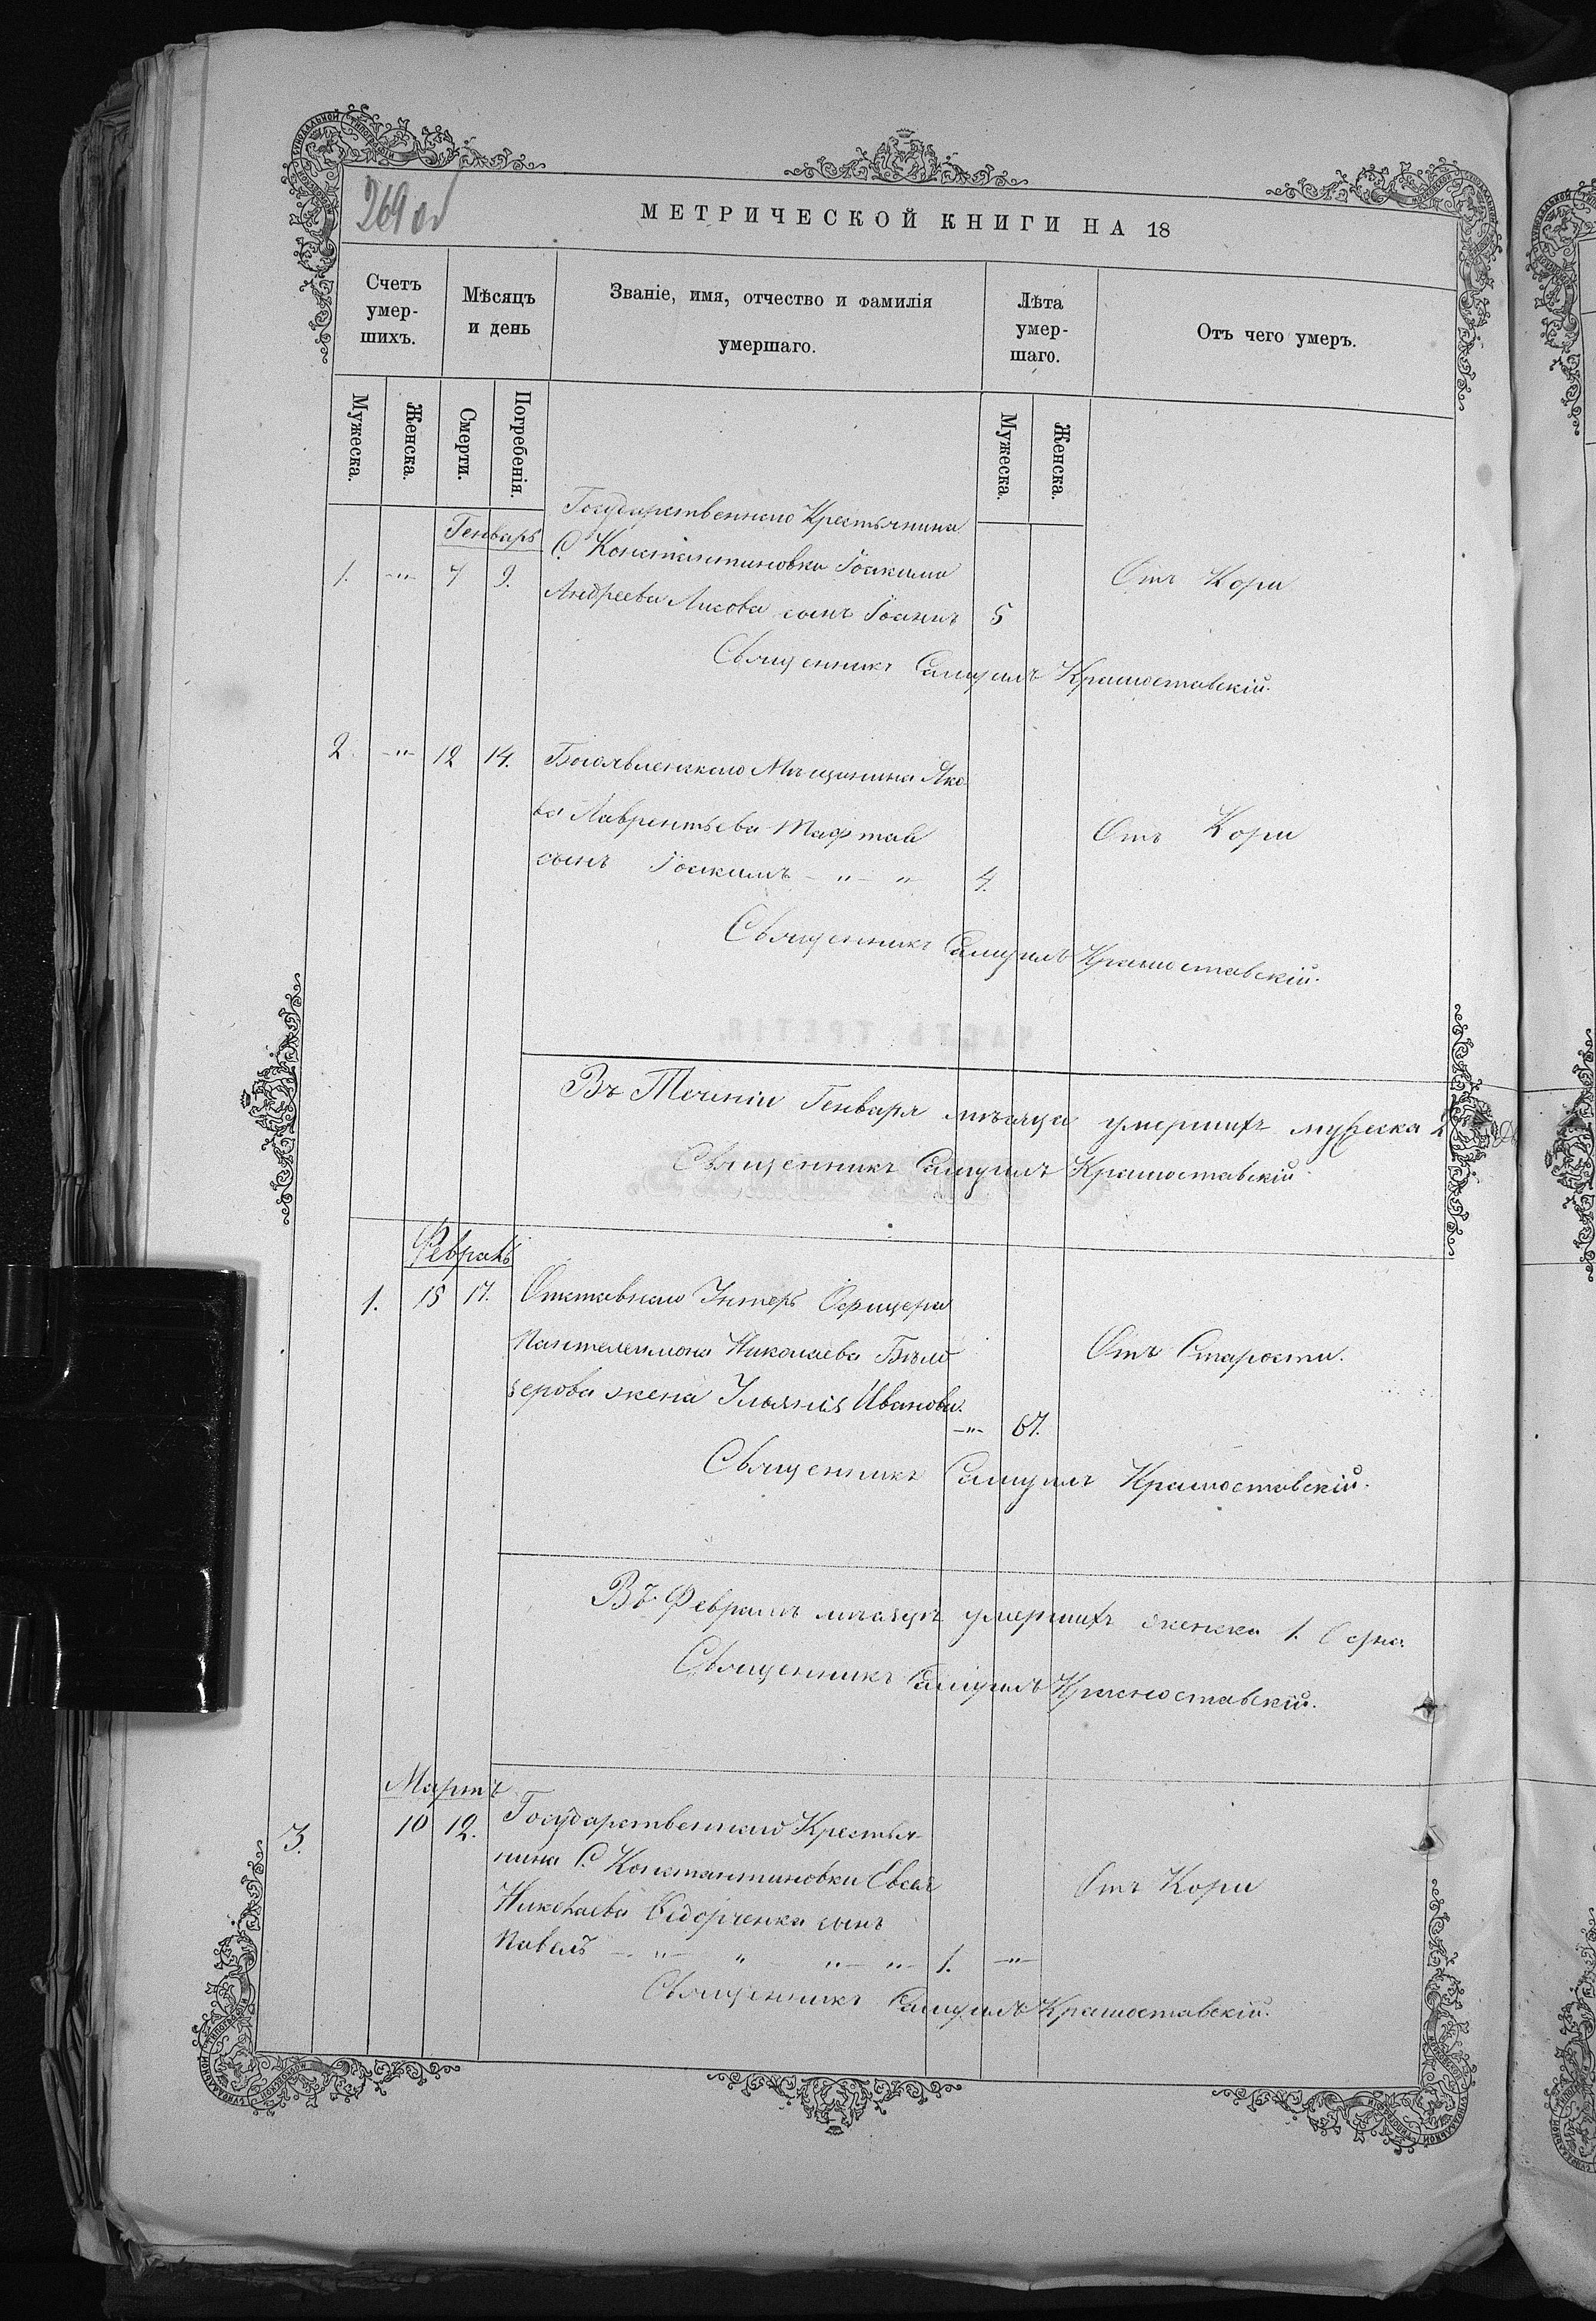 269 об
МЕТРИЧЕСКОЙ КНИГИ НА 18
Счетъ умер-шихъ.
Мѣсяцъ и день
Званіе, имя, отчество и фамилія умершаго.
Лѣта умер-шаго.
Отъ чего умеръ.
Мужеска.
Женска.
Смерти.
Погребенія.
Мужеска.
Женска.
Генварь
Государственнаго Крестьянина
С. Константиновки Іоакима
1. -"- 7 9. Андреева Лисова сынъ Іоаннъ 5 Отъ Кори
Священникъ Самуилъ Крамоставскій.
2. -"- 12 14. Богоявленскаго Мѣщанина Яко-
ва Лаврентьева Мафтай Отъ Кори
сынъ Іоакимъ - " - " 4.
Священникъ Самуилъ Крамоставскій.
Въ Теченіи Генваря мѣсяца умершихъ мужеска 2
Священникъ Самуилъ Крамоставскій
Февраль
1. 15 17. Отставнаго Унтеръ Офицера
Пантелеимона Николаева Бѣло- Отъ Старости.
зерова жена Ульянія Иванова. -"- 67.
Священникъ Самуилъ Крамоставскій.
Въ Февралѣ мѣсяцѣ умершихъ женска 1. Одна
Священникъ Самуилъ Крамоставскій.
Мартъ
3. 10 12. Государственнаго Крестья-
нина С. Константиновки Евсея Отъ Кори
Николаева Сидорченка сынъ
Павелъ - " - " - " - " - 1. -"-
Священникъ Самуилъ Крамоставскій.